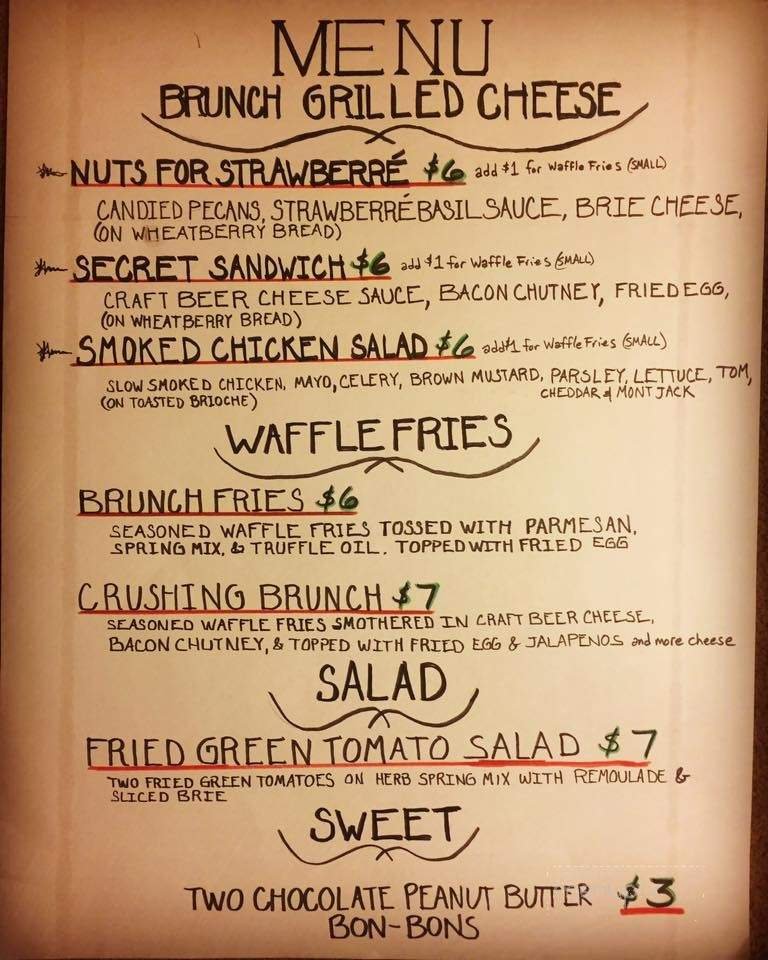 MENU
BRUNCH GRILLED CHEESE
NUTS FOR STRAWBERRÉ $6 add $1 for Waffle Fries (SMALL)
CANDIED PECANS, STRAWBERRÉ BASIL SAUCE, BRIE CHEESE,
(ON WHEATBERRY BREAD)
SECRET SANDWICH $6 add $1 for Waffle Fries (SMALL)
CRAFT BEER CHEESE SAUCE, BACON CHUTNEY, FRIED EGG,
(ON WHEATBERRY BREAD)
SMOKED CHICKEN SALAD $6 add $1 for Waffle Fries (SMALL)
SLOW SMOKED CHICKEN, MAYO, CELERY, BROWN MUSTARD, PARSLEY, LETTUCE, TOM,
(ON TOASTED BRIOCHE) CHEDDAR & MONT JACK
WAFFLE FRIES
BRUNCH FRIES $6
SEASONED WAFFLE FRIES TOSSED WITH PARMESAN,
SPRING MIX, & TRUFFLE OIL. TOPPED WITH FRIED EGG
CRUSHING BRUNCH $7
SEASONED WAFFLE FRIES SMOTHERED IN CRAFT BEER CHEESE,
BACON CHUTNEY, & TOPPED WITH FRIED EGG & JALAPENOS and more cheese
SALAD
FRIED GREEN TOMATO SALAD $7
TWO FRIED GREEN TOMATOES ON HERB SPRING MIX WITH REMOULADE &
SLICED BRIE
SWEET
TWO CHOCOLATE PEANUT BUTTER $3
BON-BONS